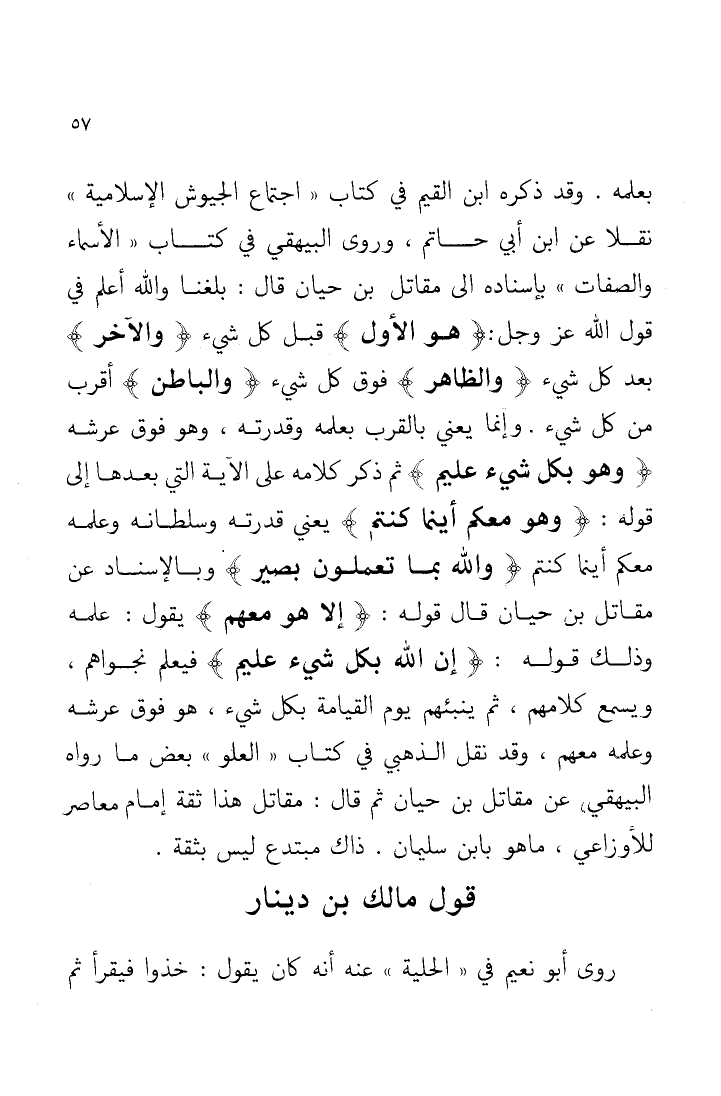 ٥٧
بعلمه . وقد ذكره ابن القيم في كتاب « اجتماع الجيوش الإسلامية »
نقـــلا عن ابن أبي حـــــاتم ، وروى البيهقي في كتـــــاب « الأسماء
والصفات » بإسناده الى مقاتل بن حيان قال : بلغنــا والله أعلم في
قول الله عز وجل:﴿ هــو الأول ﴾ قبــل كل شيء ﴿ والآخر ﴾
بعد كل شيء ﴿ والظاهر ﴾ فوق كل شيء ﴿ والباطن ﴾ أقرب
من كل شيء . وإنما يعني بالقرب بعلمه وقدرتـه ، وهو فوق عرشـه
﴿ وهو بكل شيء عليم ﴾ ثم ذكر كلامه على الآيـة التي بعـدهـا إلى
قوله : ﴿ وهو معكم أينما كنتم ﴾ يعني قدرتـه وسلطـانـه وعلمـه
معكم أينما كنتم ﴿ والله بمـا تعملـون بصير ﴾ وبـالإسنـاد عن
مقـاتل بن حيـان قـال قولـه : ﴿ إلا هو معهم ﴾ يقول : علمـه
وذلـك قـولـه : ﴿ إن الله بكل شيء عليم ﴾ فيعلم نجـواهم ،
ويسمع كلامهم ، ثم ينبئهم يوم القيامة بكل شيء ، هو فوق عرشـه
وعلمه معهم ، وقد نقل الـذهبي في كتـاب « العلو » بعض مـا رواه
البيهقي عن مقاتل بن حيان ثم قال : مقاتل هذا ثقة إمـام معـاصر
للأوزاعي ، ماهو بابن سليمان . ذاك مبتدع ليس بثقة .
قول مالك بن دينار
روى أبو نعيم في « الحلية » عنه أنه كان يقول : خذوا فيقرأ ثم